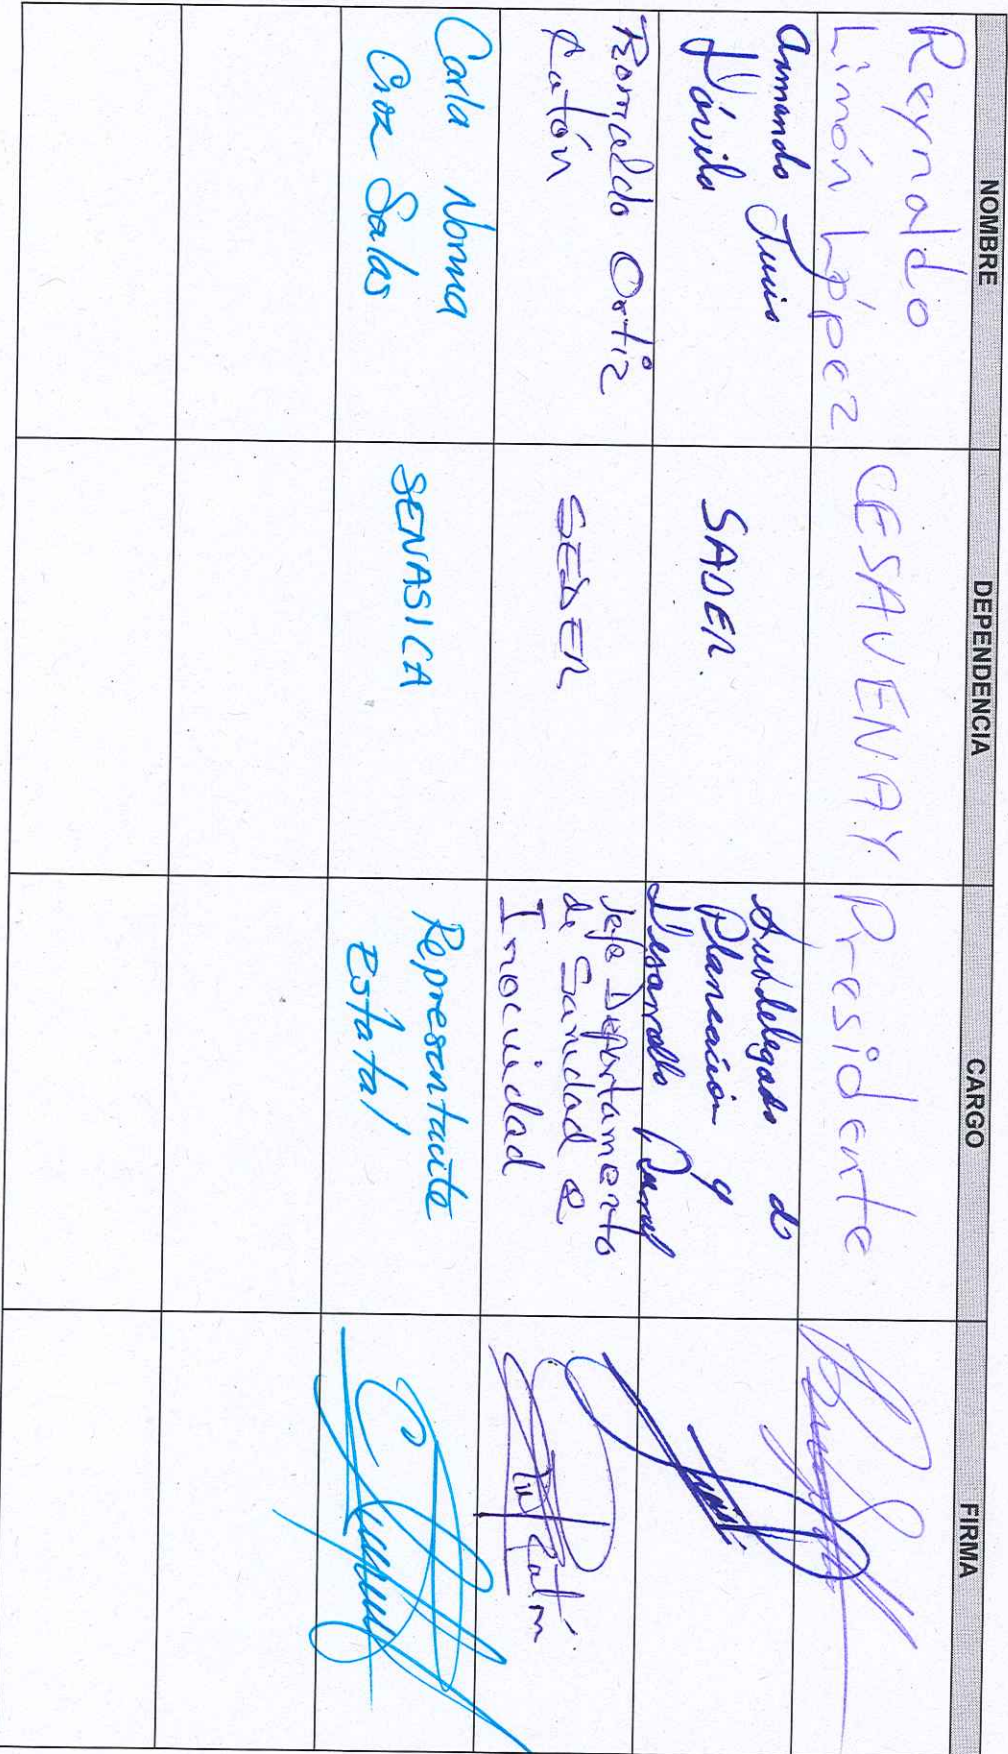 NOMBRE
DEPENDENCIA
CARGO
FIRMA
Reynaldo
Limón López
CESAVENAY
Presidente
Armando
SADER.
Subdelegado de
Planeación y
Desarrollo Rural
Romaldo Ortiz
Catón
SEDER
Jefe Departamento
de Sanidad e
Inocuidad
Carla Norma
Cruz Salas
SENASICA
Representante
Estatal